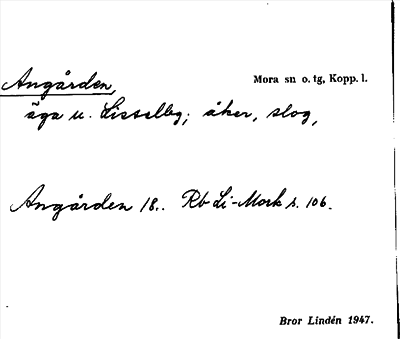 Angården, Mora sn o. tg, Kopp. l.
äga u. Lisselby; åker, slog,
Angården 18.. Rb Li-Mork s. 106.
Bror Lindén 1947.